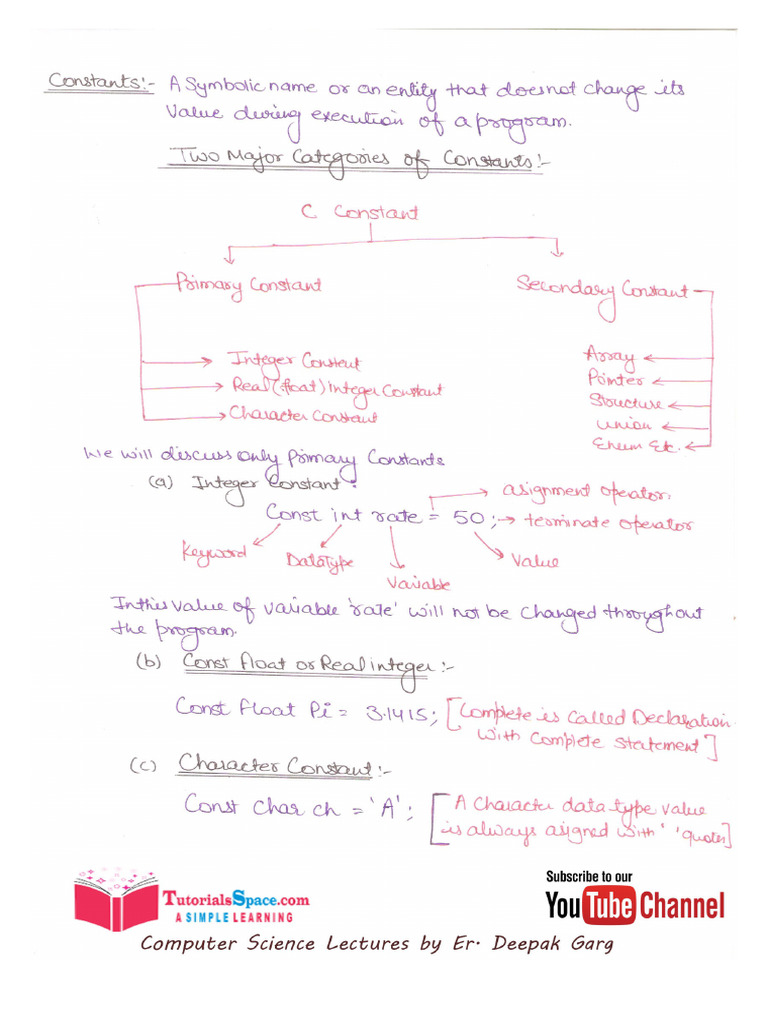 Constants:- A Symbolic name or an entity that doesnot change its
value during execution of a program.
Two Major Categories of Constants:-
C Constant
Primary Constant Secondary Constant
Integer Constent Array
Real (float) integer Constant Pointer
Character Constant Structure
union
Enum Etc.
We will discuss only primary Constants
(a) Integer Constant: asignment operator.
Const int rate = 50; terminate operator
Keyword DataType Variable Value
In this value of variable 'rate' will not be changed throughout
the program.
(b) Const float or Real integer:-
Const float Pi = 3.1415; [Complete is called Declaration
with complete statement]
(c) Character Constant:-
Const char ch = 'A'; [A Character data type value
is always asigned with ' 'quotes]
TutorialsSpace.com
A SIMPLE LEARNING
Subscribe to our
YouTube Channel
Computer Science Lectures by Er. Deepak Garg